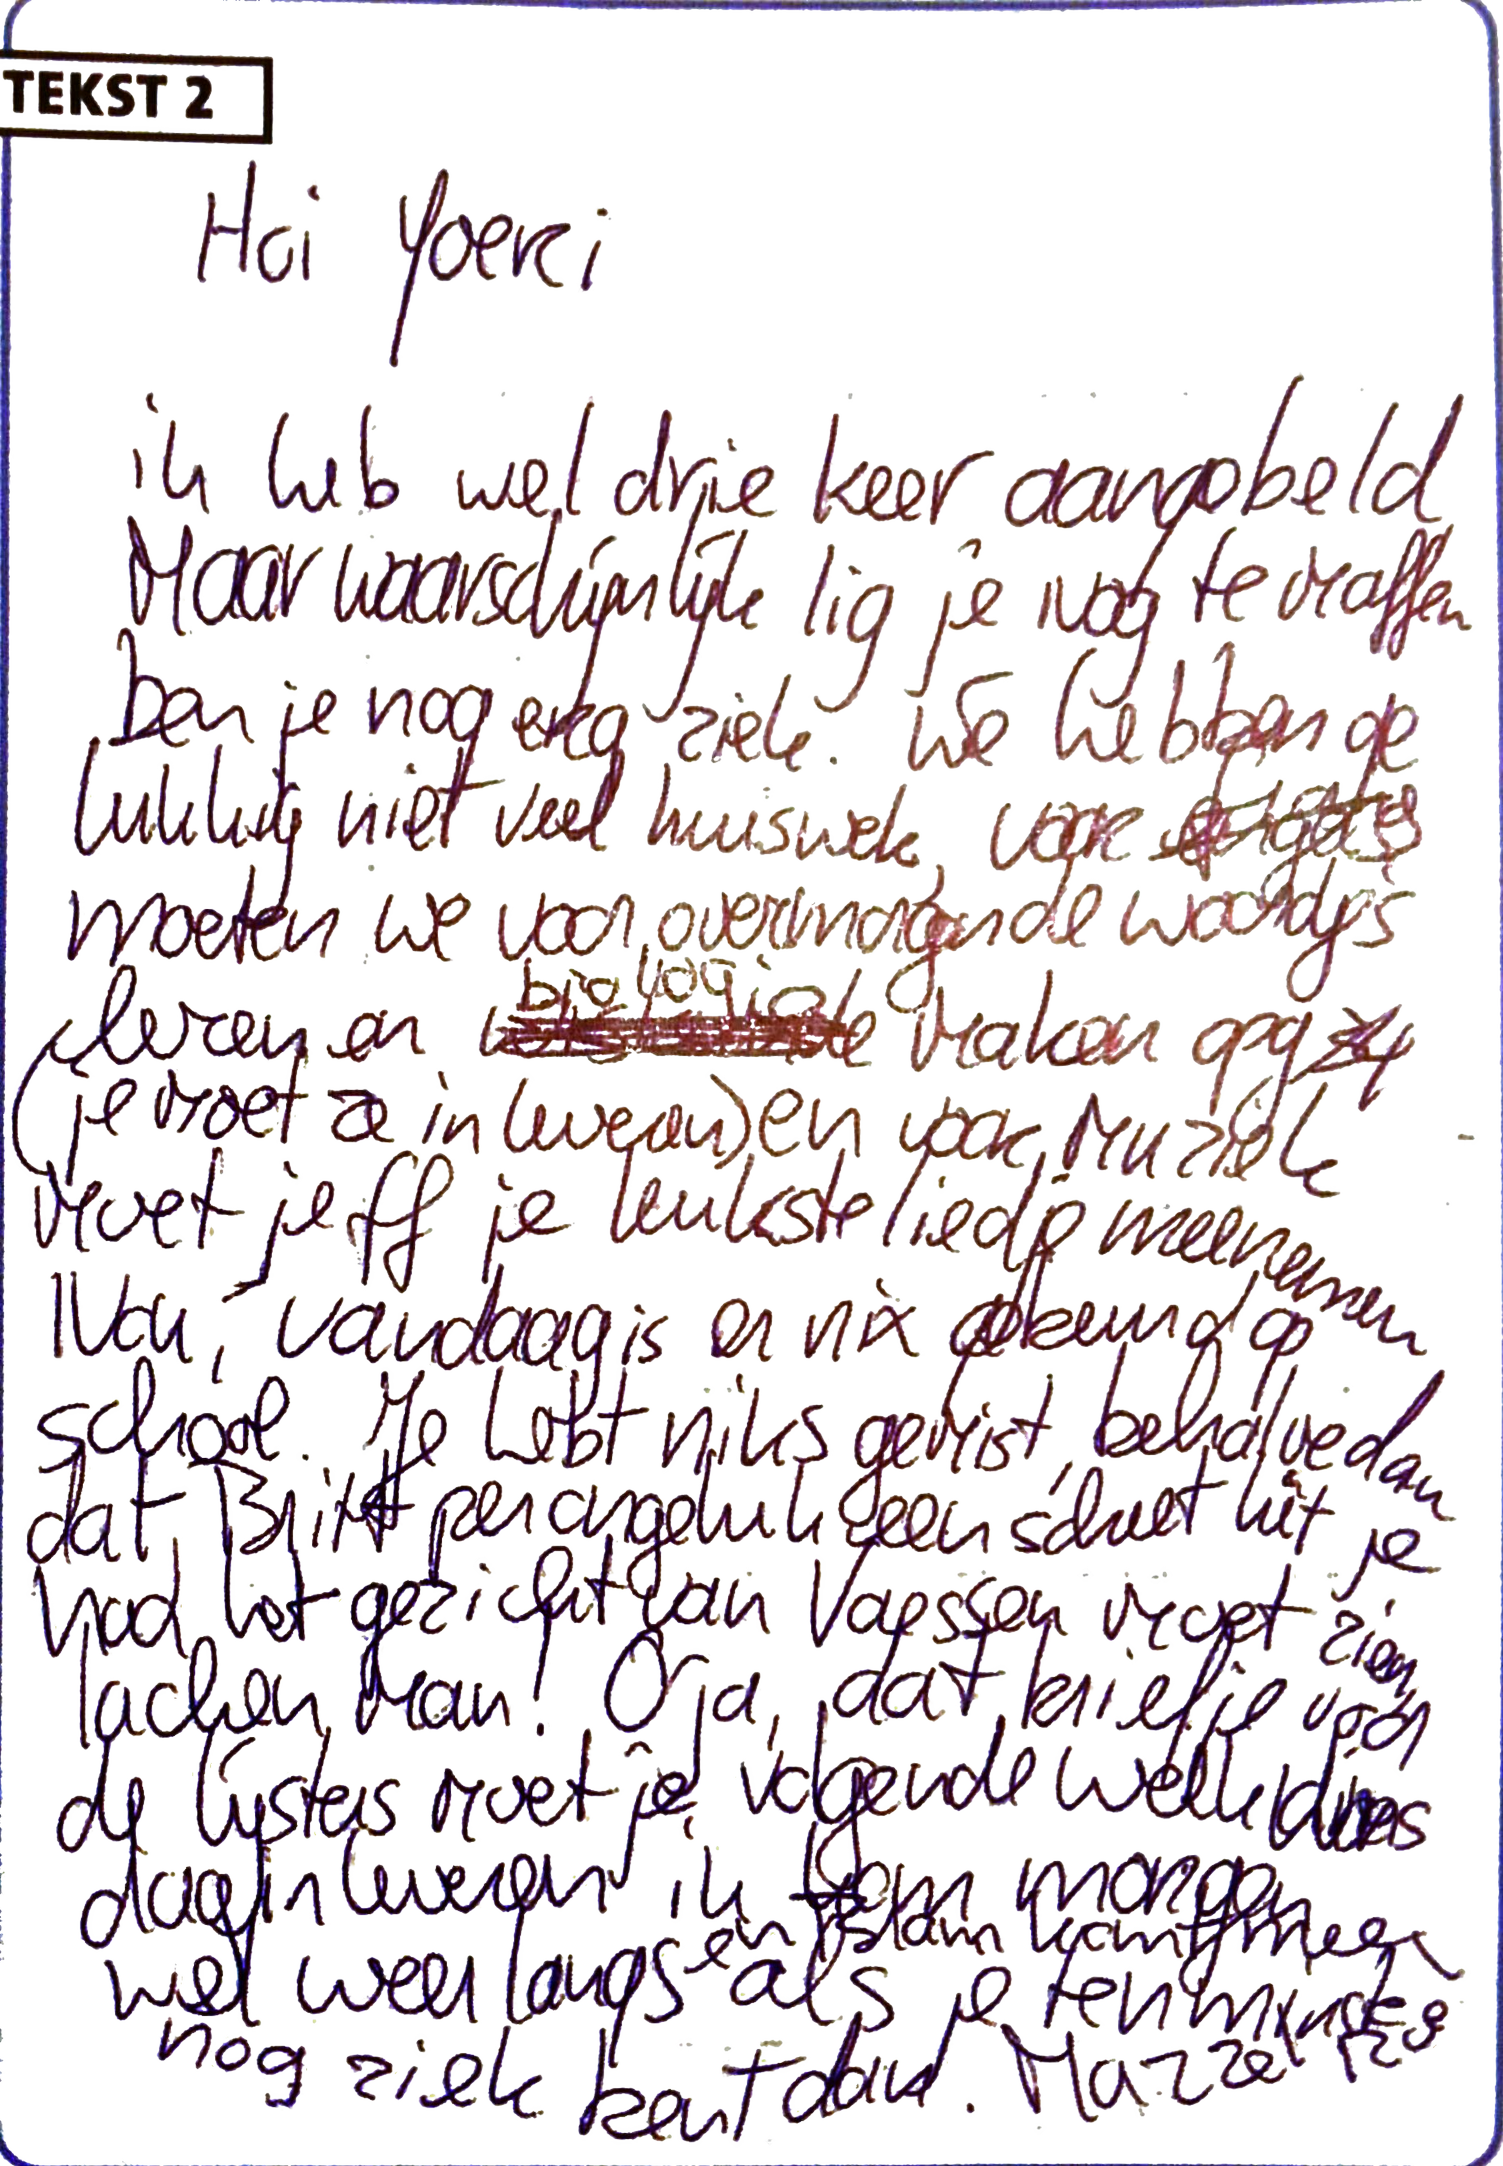 TEKST 2
Hoi Yoeri
ik heb wel drie keer aangebeld
Maar waarschijnlijk lig je nog te maffen
ben je nog erg ziek. We hebben ge
lukkig niet veel huiswek, voor
moeten we voor overmorgen de woordjes
leren en biologie maken opg 4
(je moet ze inleveren) en voor Muziek
moet je ff je leukste liedje meenemen
Nou, vandaag is er nix gebeurd op
school. Je hebt niks gemist, behalve dan
dat Britt per ongeluk een scheet liet je
had het gezicht van Vaessen moet zien
lachen man! O ja, dat briefje voor
de lijsters moet je volgende week dins
dag inleveren ik kom morgen
en Islam komt mee
wel weer langs als je tenminste
nog ziek bent dan. Mazzel